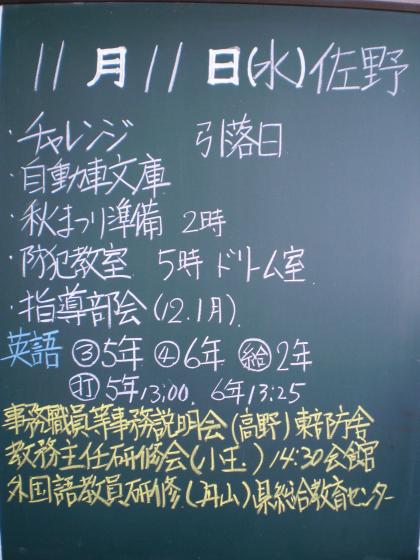 11月11日(水)佐野
・チャレンジ 引落日
・自動車文庫
・秋まつり準備 2時
・防犯教室 5時 ドリーム室
・指導部会(12.1月)
英語 ③5年 ④6年 ㊗2年
㊋ 5年13:00. 6年13:25
事務職員等事務説明会(高野)東部庁舎
教務主任研修会(小玉)14:30会館
外国語教員研修(丹山)県総合教育センター